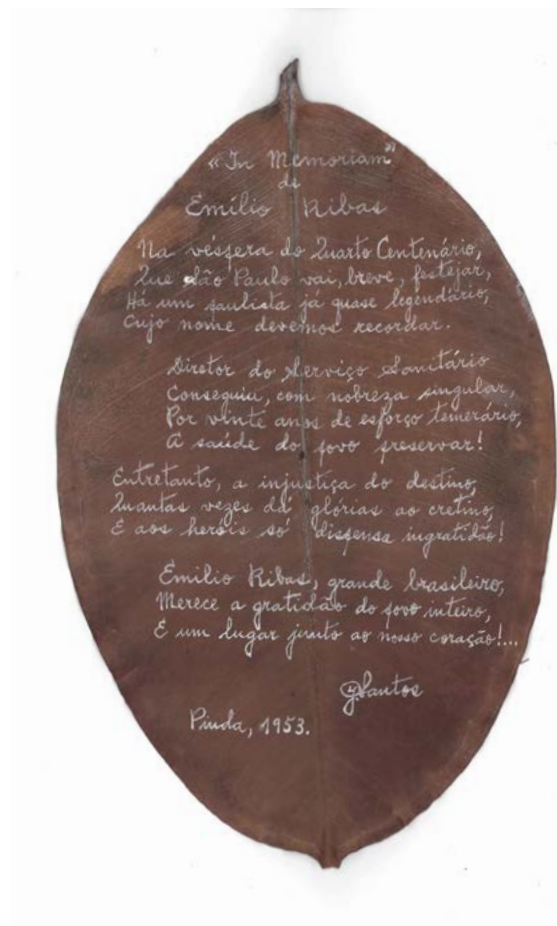 «In Memoriam"
de
Emílio Ribas
Na véspera do Quarto Centenário,
Que São Paulo vai, breve, festejar,
Há um paulista já quase legendário,
Cujo nome devemos recordar.
Diretor do Serviço Sanitário
Conseguiu, com nobreza singular,
Por vinte anos de esforço temerário,
A saúde do povo preservar!
Entretanto, a injustiça do destino,
Quantas vezes dá glórias ao cretino,
E aos heróis só dispensa ingratidão!
Emílio Ribas, grande brasileiro,
Merece a gratidão do povo inteiro,
E um lugar junto ao nosso coração!...
Santos
Pinda, 1953.